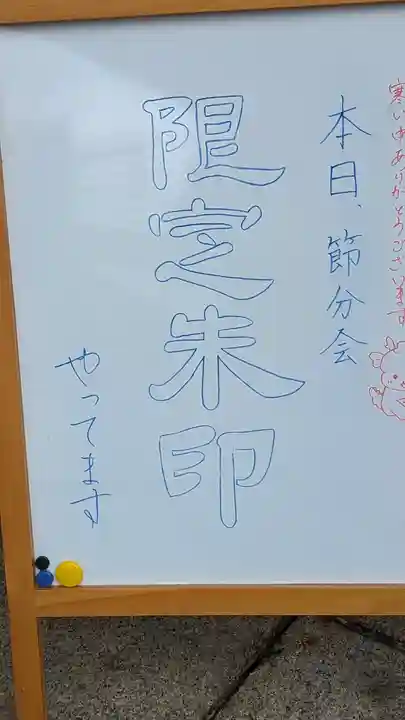 寒い中ありがとうございます
本日、節分会
限定朱印
やってます